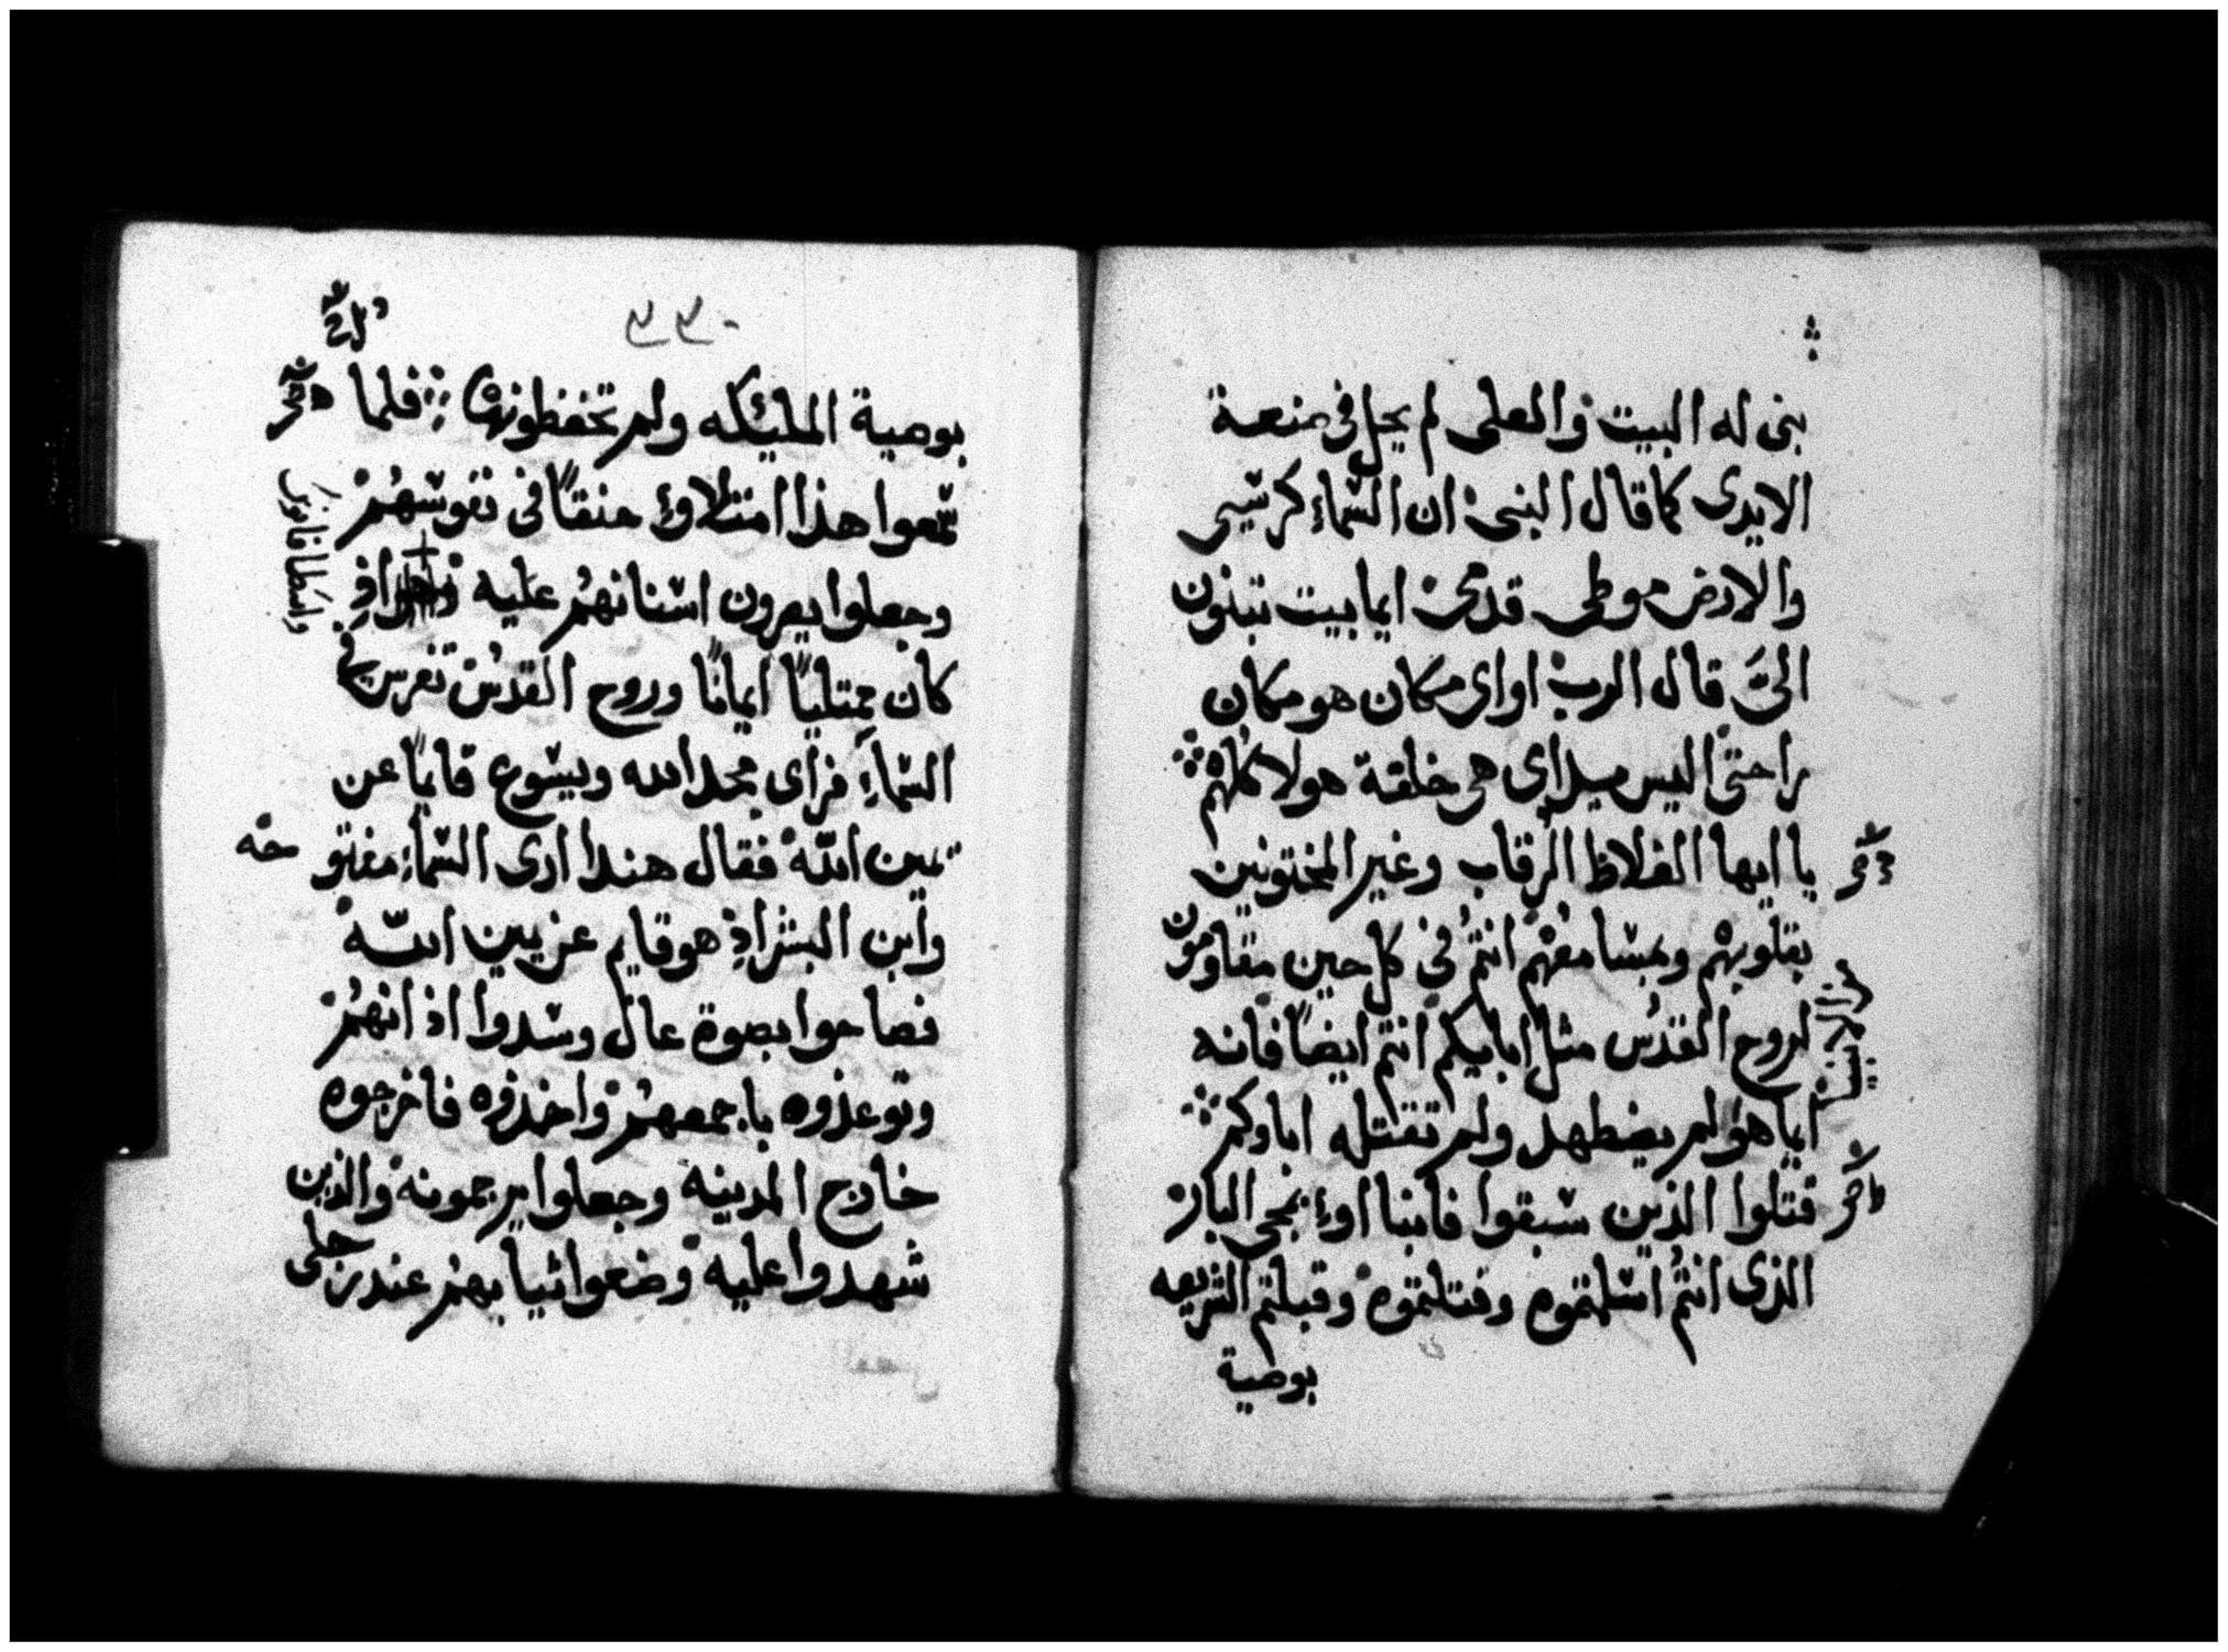 بنى له البيت والعلى لم يحل فى صنعة
الايدى كما قال النبى ان السماء كرسيى
والارض موطى قدمى ايما بيت تبنون
الىَّ قال الرب او اى مكان هو مكان
راحتى اليس يداى هى خلقة هولا كلهم
يا ايها الغلاظ الرقاب وغير المختونين
بقلوبهم ومسامعهم انتم فى كل حين مقاومون
لروح القدس مثل ابايكم انتم ايضًا فانه
ايما هو لم يضطهد ولم تقتله اباوكم
قتلوا الذين سبقوا فانبااوء بمجى البار
الذى انتم اسلمتموه وقتلتموه وقبلتم الشريعه
بوصية
بوصية المليكه ولم تحفظونها فلما
سمعوا هذا امتلاوء حنقًا فى نفوسهم
وجعلوا يصرون اسنانهم عليه واذ
كان ممتليًا ايمانًا وروح القدس تفرس فى
السماء فراى مجد الله ويسوع قايمًا عن
يمين الله فقال هندا ارى السماء مفتوحه
وابن البشر اذ هو قايم عن يمين الله
فصاحوا بصوة عال وسدوا اذانهم
وتوعدوه باجمعهم واخذوه فاخرجوه
خارج المدينه وجعلوا يرجمونه والذين
شهدوا عليه وضعوا ثيابهم عند رجلى